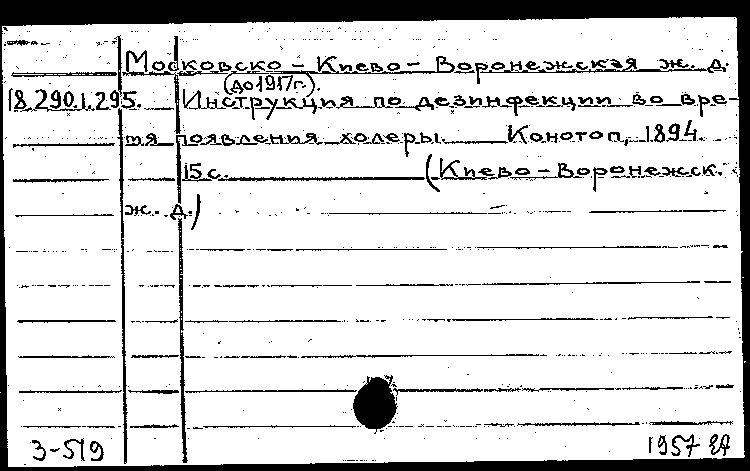 Московско – Киево – Воронежская ж. д.
(до 1917г.).
18.290.1.295. Инструкция по дезинфекции во вре-
мя появления холеры. Конотоп, 1894.
15 с. (Киево – Воронежск.
ж. д.)
3-519
1957